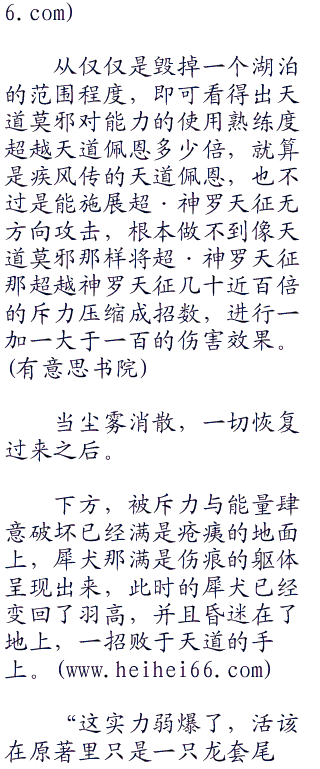 6.com)
从仅仅是毁掉一个湖泊
的范围程度，即可看得出天
道莫邪对能力的使用熟练度
超越天道佩恩多少倍，就算
是疾风传的天道佩恩，也不
过是能施展超·神罗天征无
方向攻击，根本做不到像天
道莫邪那样将超·神罗天征
那超越神罗天征几十近百倍
的斥力压缩成招数，进行一
加一大于一百的伤害效果。
(有意思书院)
当尘雾消散，一切恢复
过来之后。
下方，被斥力与能量肆
意破坏已经满是疮痍的地面
上，犀犬那满是伤痕的躯体
呈现出来，此时的犀犬已经
变回了羽高，并且昏迷在了
地上，一招败于天道的手
上。(www.heihei66.com)
“这实力弱爆了，活该
在原著里只是一只龙套尾